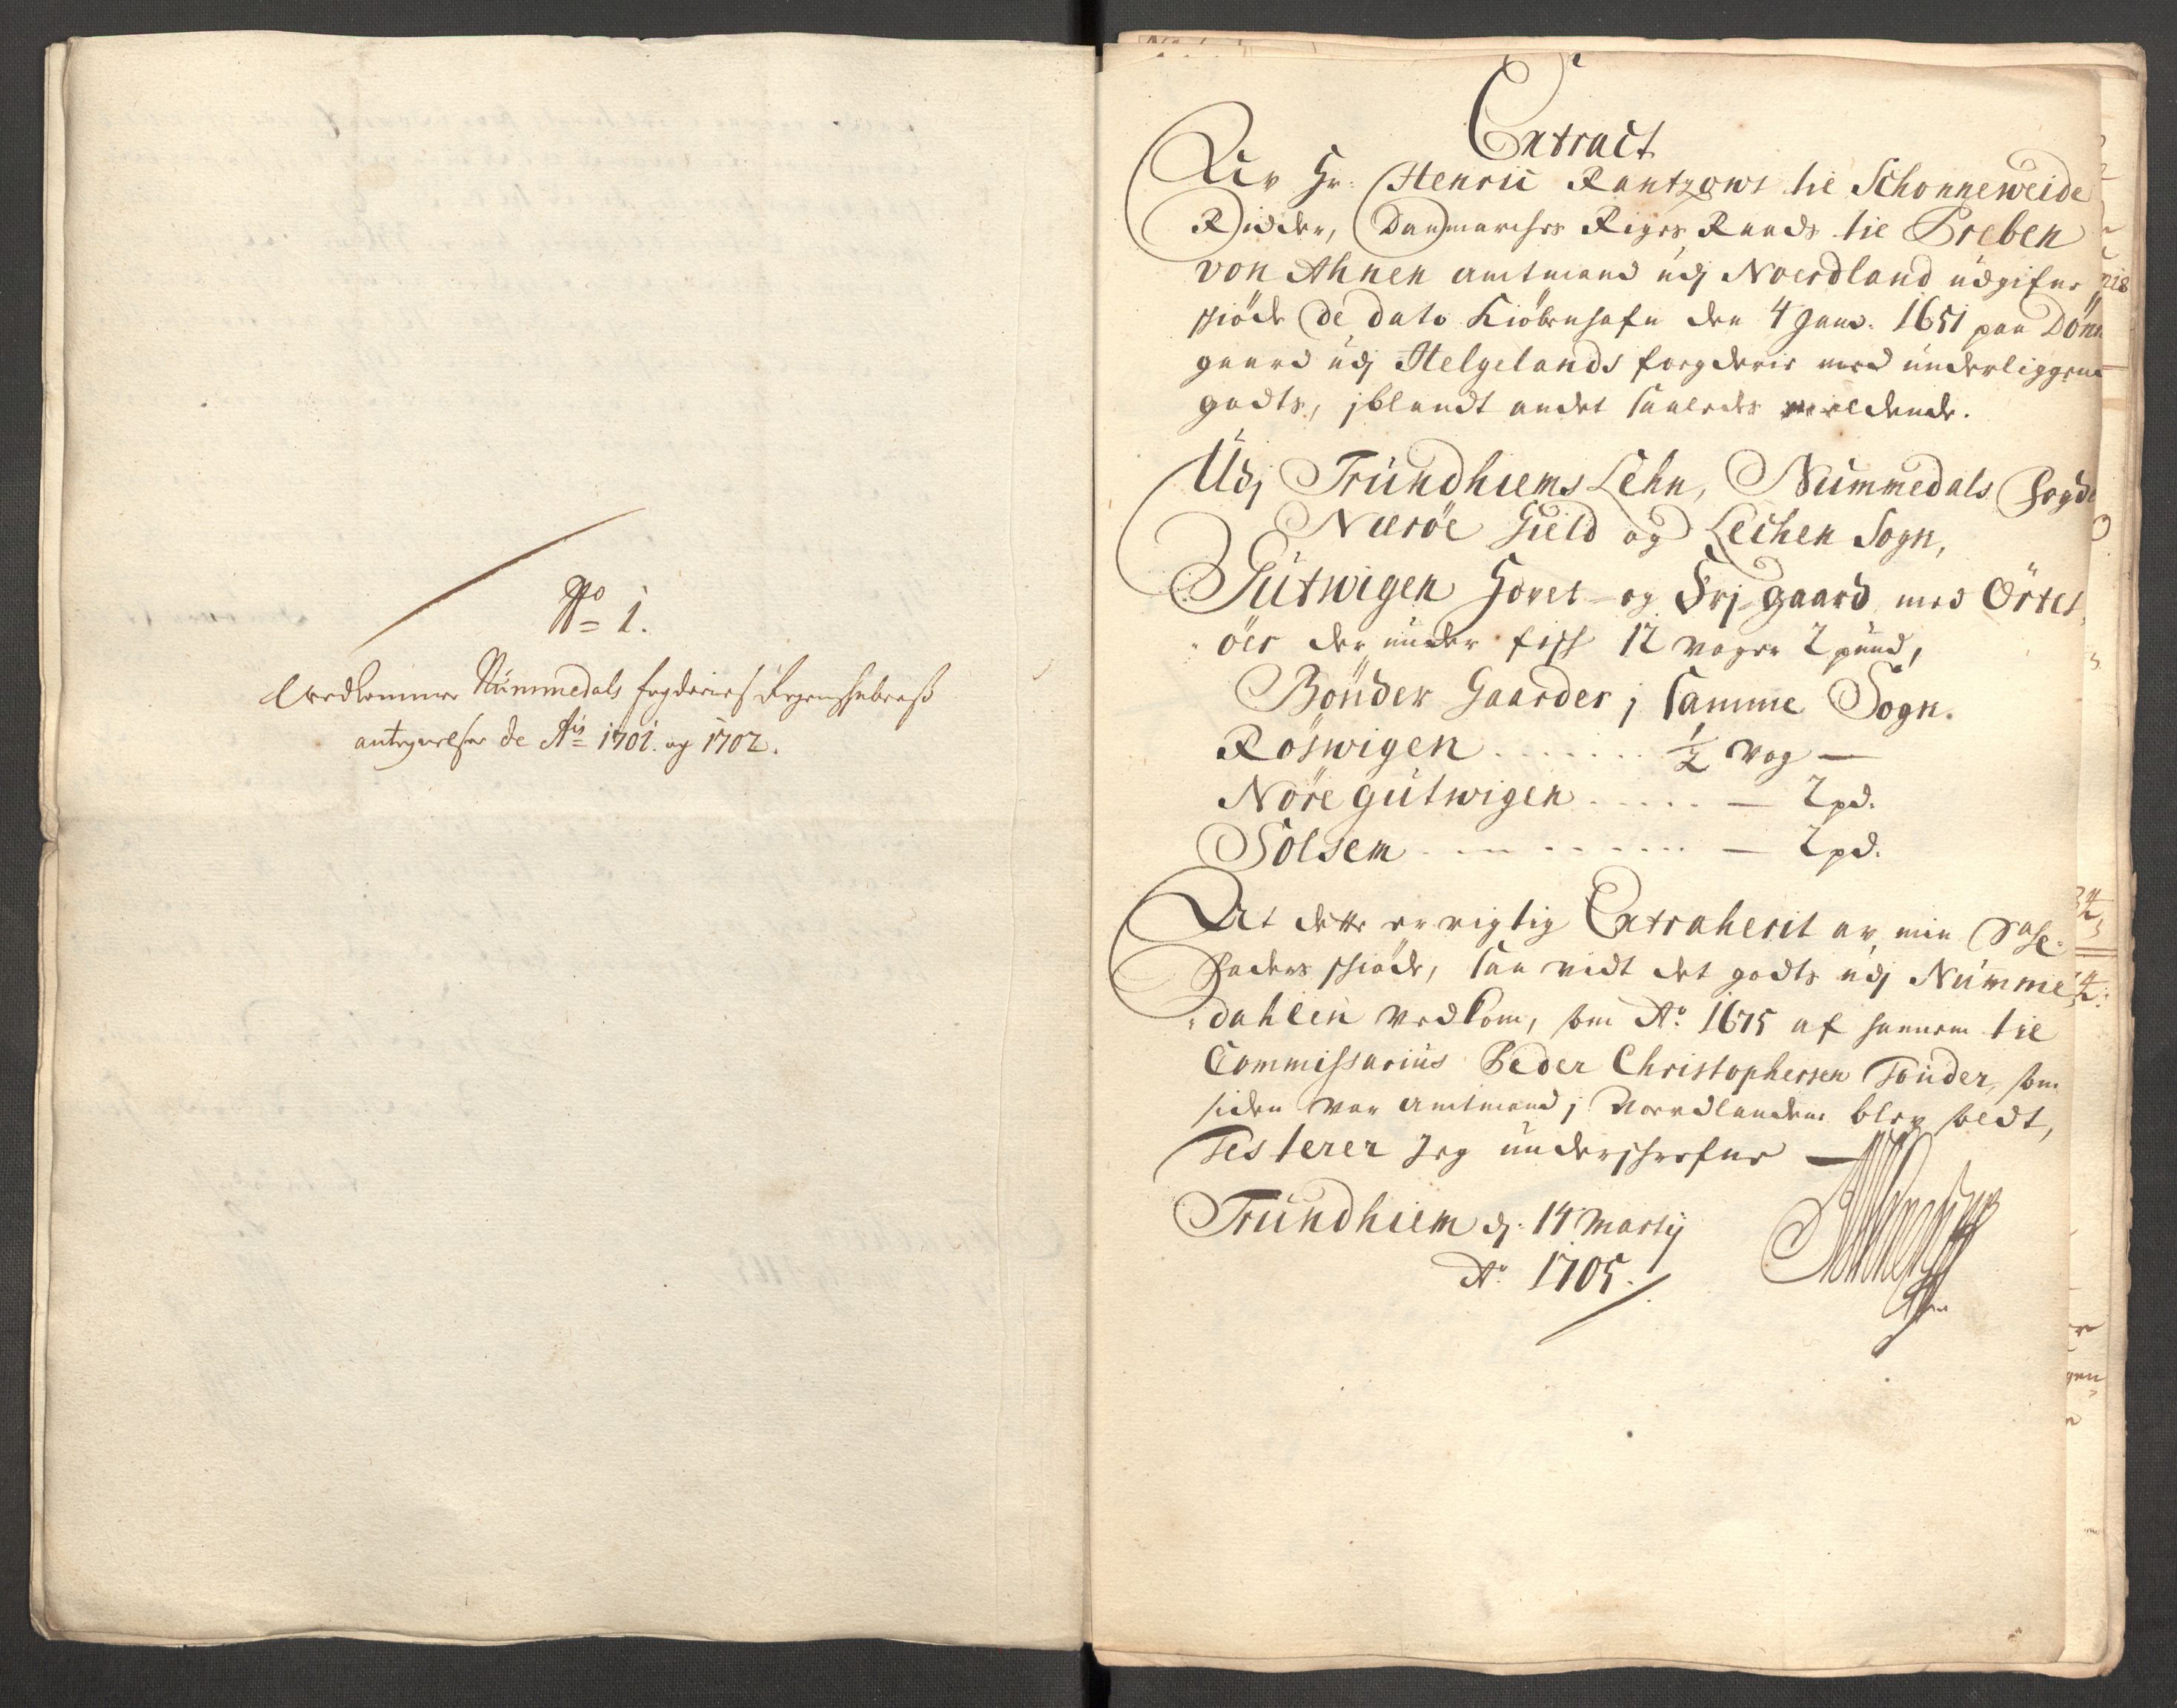 No 1.
Vedkommer Nummedals fogderies Regenskabers
antegnelser de Ais 1701. og 1702.
Extract
Av Hr: Henric Rantzows til Schonneweide
Ridder, Danmarches Riges Raads til Preben
von Ahnen amtmand udj Noerdland udgifne
skiöde de dato Kiöbenhafn den 4 Janv. 1651 paa Dönn
gaard udj Helgelands fogderie med underliggend
godts, jblandt andet saaledes meldende.
Udj Trundhiems Lehn, Nummedals Fogd
Næröe Gield og Lechen Sogn,
Gutwigen Hovet og Frj-gaard med Örtes
öer der under fisk 12 voger 2 pund,
Bönder Gaarder j samme Sogn.
Röswigen . . . . . . ½ vog —
Nöre gutwigen . . . . . — 2 pd.
Solsem . . . . . . . — 2 pd.
At dette er rigtig Extraherit av min Sal:
Faders skiöde, saa vidt det godts udj Numme
dahlen vedkom, som Ao. 1675 af hannem til
Commissarius Peder Christophersen Tonder, som
siden var amtmand j Nordlanden blev soldt,
Testerer Jeg underskrefne —
Trundhiem dj: 14 Martij
Ao. 1705.